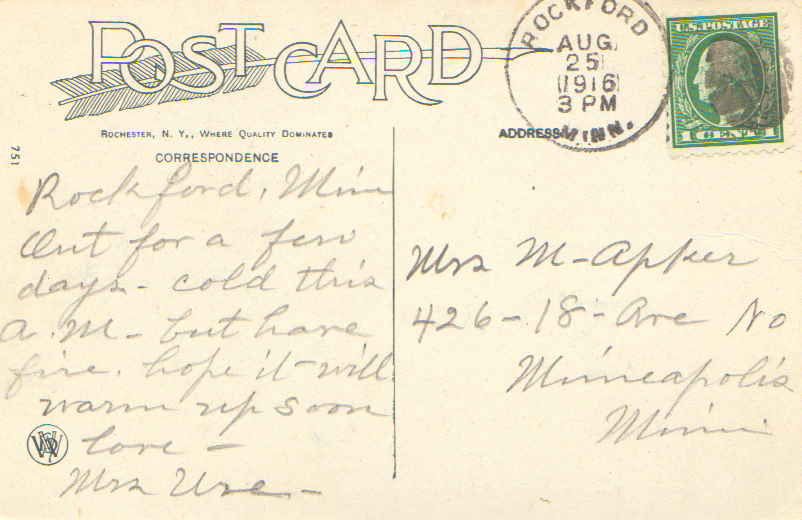 POST CARD
ROCHESTER, N. Y., WHERE QUALITY DOMINATES
CORRESPONDENCE
751
Rockford, Minn
Out for a few
days - cold this
A.M - but have
fire. hope it will
warm up soon
love -
Mrs Ure -
ROCKFORD
AUG
25
1916
3 PM
MINN.
U.S. POSTAGE
1 CENT 1
ADDRESS
Mrs M - Apker
426 - 18 - Ave No
Minneapolis
Minn